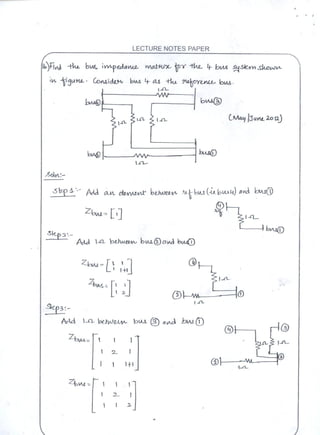 LECTURE NOTES PAPER
Find the bus impedance matrix for the 4 bus system shown
in figure. Consider bus 4 as the reference bus.
1Ω
bus④ bus③
1Ω 1Ω 1Ω (May/June 2012)
bus① bus②
1Ω
Soln:-
Step 1:- Add an element between ref bus (ie bus 4) and bus①
Zbus = [1]
④
1Ω
bus①
Step 2:-
Add 1Ω between bus ② and bus①
Zbus = [1 1
1 1+1]
④
1Ω
Zbus = [1 1
1 2]
② 1Ω ①
Step 3:-
Add 1Ω between bus ③ and bus ①
Zbus = [1 1 1
1 2 1
1 1 1+1]
④ ③
1Ω 1Ω
② 1Ω
Zbus = [1 1 1
1 2 1
1 1 2]